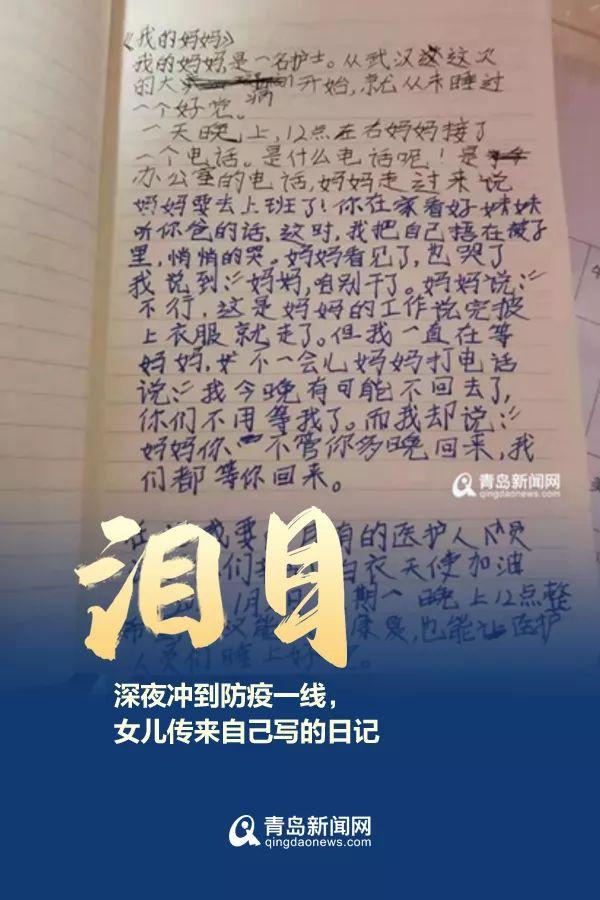 《我的妈妈》
我的妈妈是一名护士。从武汉这次
的大病开始,就从未睡过
一个好觉。
一天晚上,12点左右妈妈接了
一个电话。是什么电话呢!是
办公室的电话,妈妈走过来说
妈妈要去上班了!你在家看好妹妹
听你爸的话、这时,我把自己捂在被子
里,悄悄的哭。妈妈看见了,也哭了
我说到:“妈妈,咱别干了。妈妈说:“
不行,这是妈妈的工作说完披
上衣服就走了。但我一直在等
妈妈,不一会儿妈妈打电话
说:“我今晚有可能不回去了,
你们不用等我了。而我却说:“
妈妈你不管你多晚回来,我
们都等你回来。
青岛新闻网
qingdaonews.com
我要 有的医护人员
们 白衣天使加油
1月 期 晚上12点整
能 康复,也能让医护
人员们睡上好
泪目
深夜冲到防疫一线,
女儿传来自己写的日记
青岛新闻网
qingdaonews.com